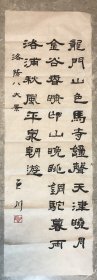 龍門山色馬寺鐘聲天津曉月
金谷春晴邙山晚眺銅駝暮雨
洛浦秋風平泉朝游
洛陽八大景